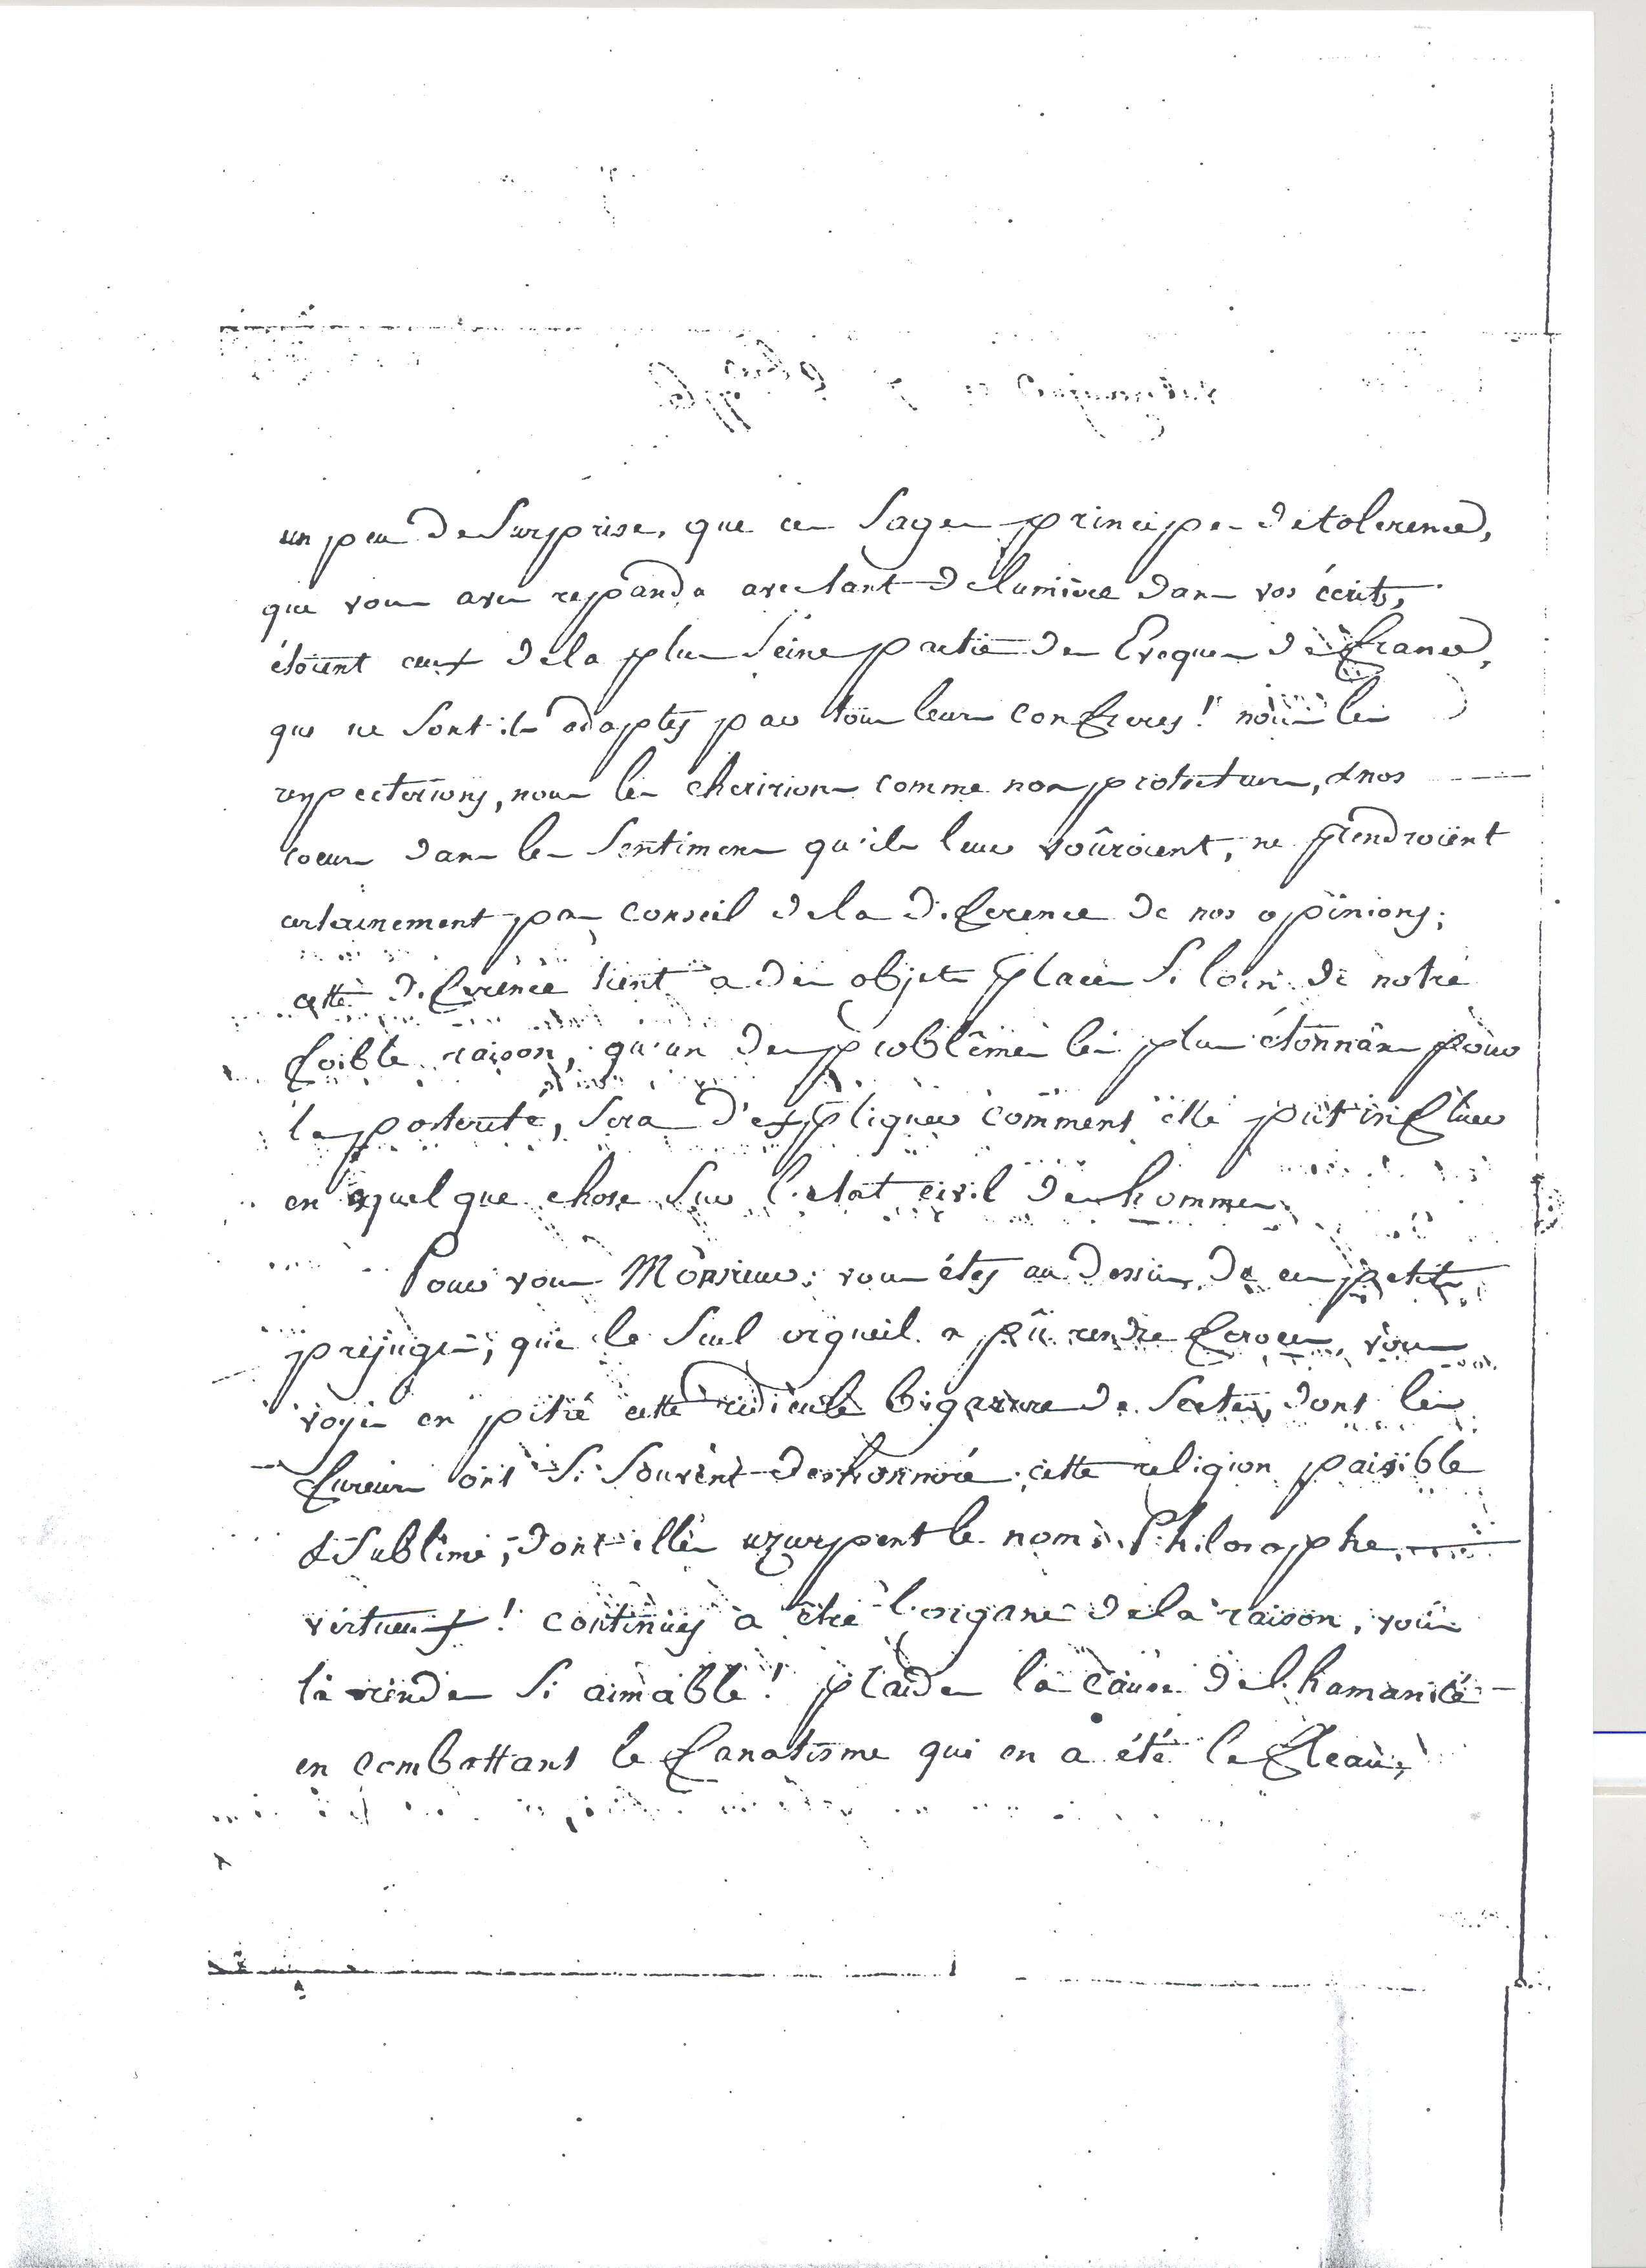 un peu de Surprise, que ces Sages principes de tolerence,
que vous avez repandu avec tant de lumière dans vos écrits,
étoient ceux de la plus Seine partie des Eveques de france,
que ne Sont-ils adoptés par tous leurs confreres! nous les
respecterions, nous les cheririons comme nos protecteurs, & nos
coeurs dans les Sentimens qu'ils leur voûroient, ne prendroient
certainement pas conseil de la diference de nos opinions;
cette diference tient a des objets placés Si loin de notre
foible raison, qu'un des problêmes les plus étonnans pour
la posterité, Sera d'expliquer comment elle put influer
en quelque chose Sur l'etat civil des hommes.
Pour vous Monsieur, vous étes au dessus de ces petits
prejugés, que le Seul orgueil a pû rendre feroces, vous
voyés en pitié cette ridicule bigarrure de Sectes, dont les
fureurs ont Si Souvent deshonnoré cette religion paisible
& Sublime, dont elles uzurpent le nom. Philosophe
vertueux! continués à être l'organe de la raison, vous
la rendés Si aimable! plaidés la cause de l'humanité
en combattant le fanatisme qui en a été le fleau,